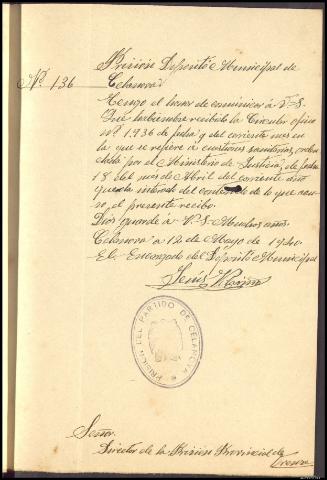 Prision Deposito Municipal de
Nº 136 Celanova
Tengo el honor de comunicar á V.S.
que habiendose recibido la Circular oficio
nº 1.936 de fecha 9 del corriente mes en
la que se refiere á cuestiones sanitarias,
dada por el Ministerio de Justicia, de fecha
18 del mes de Abril del corriente año
queda enterado del contenido de lo que acu-
so, el presente recibo.
Dios guarde á V.S. Muchos años.
Celanova á 12 de Mayo de 1940.
El Encargado del Deposito Municipal
Jesús
PRISION DEL PARTIDO DE CELANOVA
Señor.
Director de la Prision Provincial de
Orense